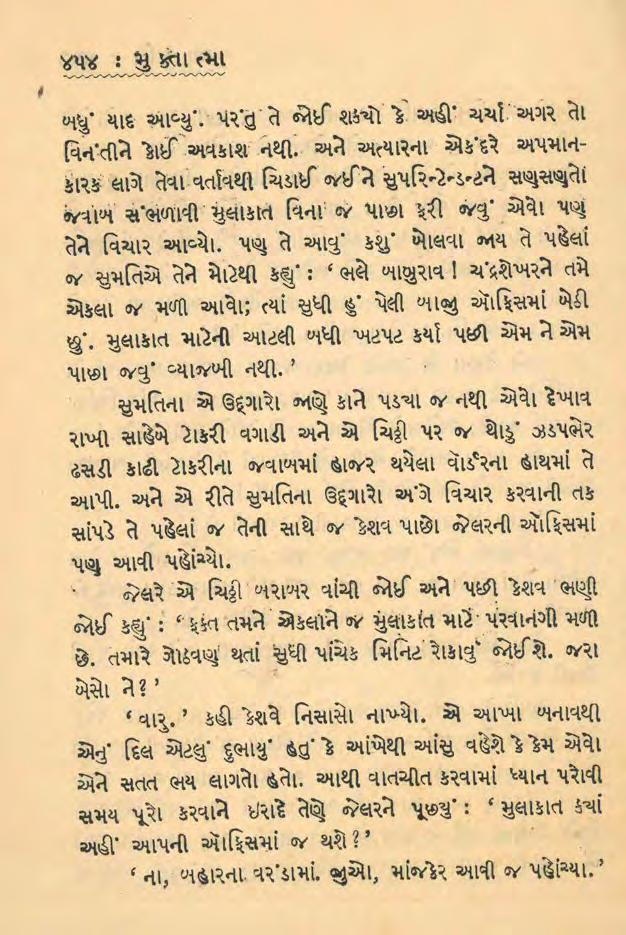 ૪૫૪ : મુક્તાત્મા
બધું યાદ આવ્યું. પરંતુ તે જોઈ શક્યો કે અહીં ચર્ચા અગર તો
વિનંતીને કોઈ અવકાશ નથી. અને અત્યારના એકંદરે અપમાન-
કારક લાગે તેવા વર્તાવથી ચિડાઈ જઈને સુપરિન્ટેન્ડન્ટને સણસણતો
જવાબ સંભળાવી મુલાકાત વિના જ પાછા ફરી જવું એવો પણ
તેને વિચાર આવ્યો. પણ તે આવું કશું બોલવા જાય તે પહેલાં
જ સુમતિએ તેને મોટેથી કહ્યું : ‘ ભલે બાબુરાવ ! ચંદ્રશેખરને તમે
એકલા જ મળી આવો; ત્યાં સુધી હું પેલી બાજુ ઑફિસમાં બેઠી
છું. મુલાકાત માટેની આટલી બધી ખટપટ કર્યા પછી એમ ને એમ
પાછા જવું વ્યાજબી નથી. ’
સુમતિના એ ઉદ્દ્ગારો જાણે કાને પડ્યા જ નથી એવો દેખાવ
રાખી સાહેબે ટોકરી વગાડી અને એ ચિઠ્ઠી પર જ થોડું ઝડપભેર
ઢસડી કાઢી ટોકરીના જવાબમાં હાજર થયેલા વૉર્ડરના હાથમાં તે
આપી. અને એ રીતે સુમતિના ઉદ્ગારો અંગે વિચાર કરવાની તક
સાંપડે તે પહેલાં જ તેની સાથે જ કેશવ પાછો જેલરની ઑફિસમાં
પણ આવી પહોંચ્યો.
જેલરે એ ચિઠ્ઠી બરાબર વાંચી જોઈ અને પછી કેશવ ભણી
જોઈ કહ્યું : ‘ ફક્ત તમને એકલાને જ મુલાકાત માટે પરવાનગી મળી
છે. તમારે ગોઠવણ થતાં સુધી પાંચેક મિનિટ રોકાવું જોઈશે. જરા
બેસો ને ? ’
‘ વારુ. ’ કહી કેશવે નિસાસો નાખ્યો. એ આખા બનાવથી
એનું દિલ એટલું દુભાયું હતું કે આંખેથી આંસુ વહેશે કે કેમ એવો
એને સતત ભય લાગતો હતો. આથી વાતચીત કરવામાં ધ્યાન પરોવી
સમય પૂરો કરવાને ઇરાદે તેણે જેલરને પૂછ્યું : ‘ મુલાકાત ક્યાં
અહીં આપની ઑફિસમાં જ થશે ? ’
‘ ના, બહારના વરંડામાં. જુઓ, માંજકેર આવી જ પહોંચ્યા. ’